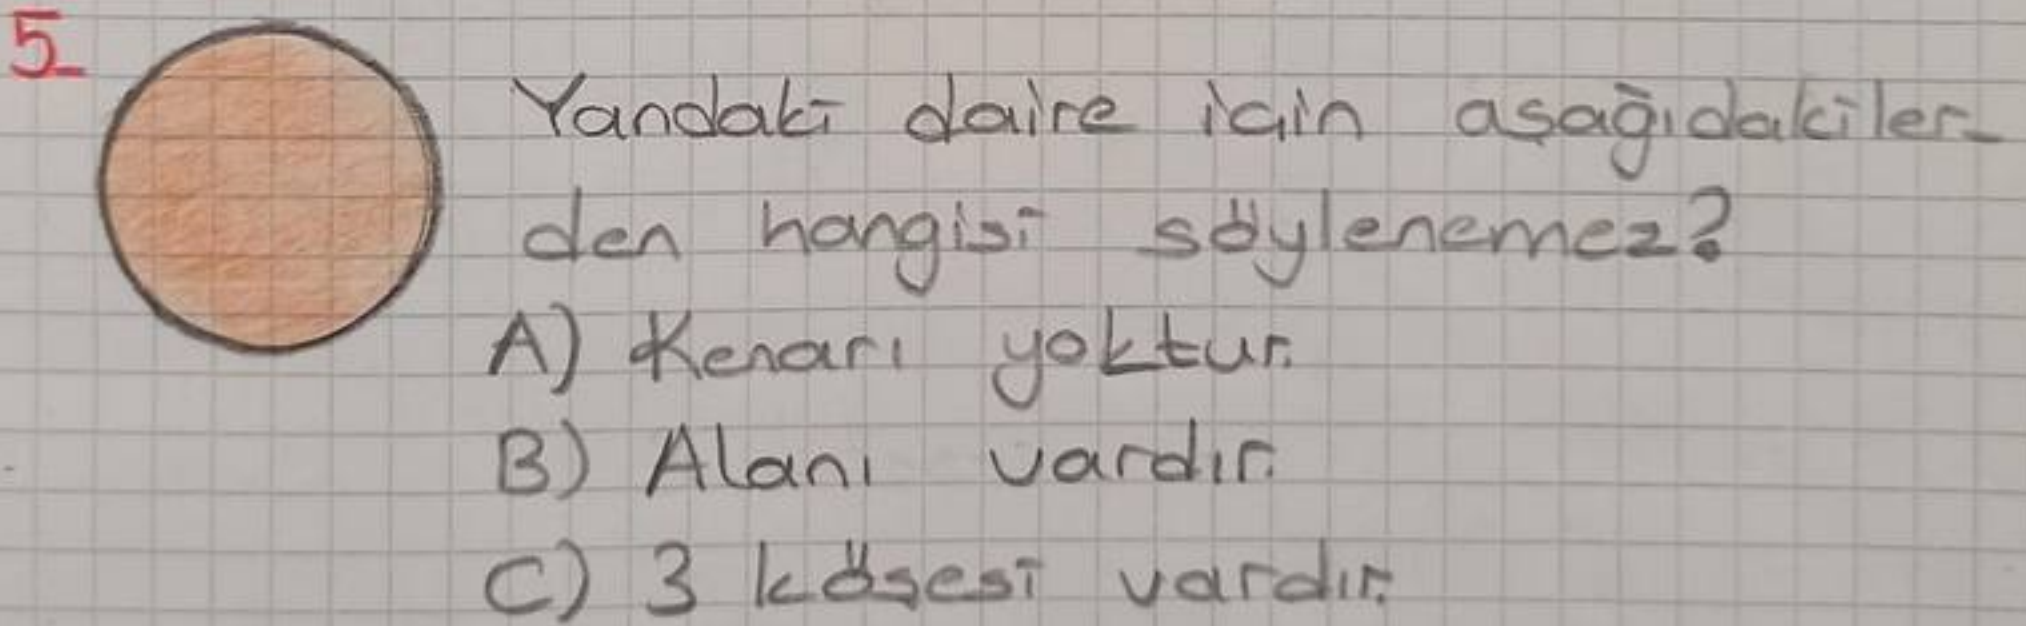 5-
Yandaki daire için aşağıdakiler-
den hangisi söylenemez?
A) Kenarı yoktur.
B) Alanı vardır.
C) 3 köşesi vardır.